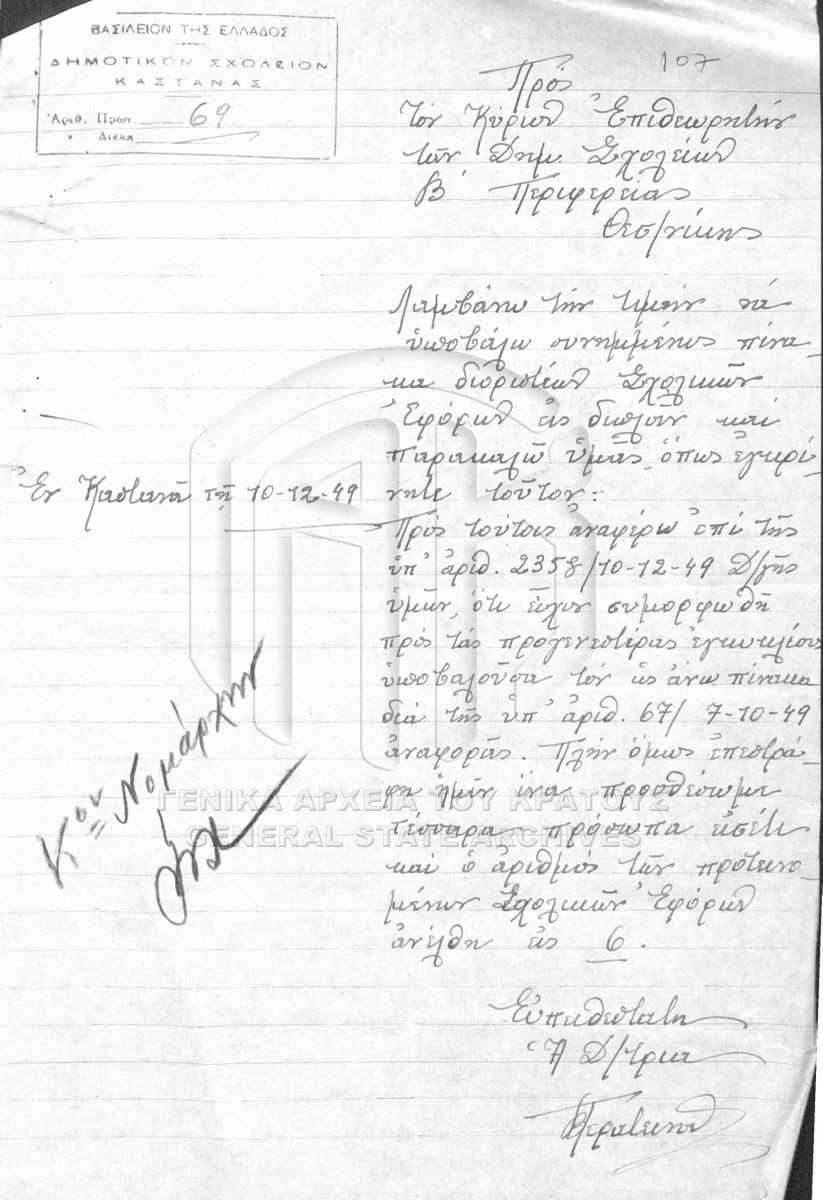 ΒΑΣΙΛΕΙΟΝ ΤΗΣ ΕΛΛΑΔΟΣ
ΔΗΜΟΤΙΚΟΝ ΣΧΟΛΕΙΟΝ
ΚΑΣΤΑΝΑΣ
Ἀριθ. Πρωτ. 69
» Διεκπ.
107
Πρὸς
τὸν Κύριον Ἐπιθεωρητὴν
τῶν Δημ. Σχολείων
Β' Περιφερείας
Θεσ/νίκης
Ἐν Καστανᾷ τῇ 10-12-49
Λαμβάνω τὴν τιμὴν νὰ
ὑποβάλω συνημμένως πίνα-
κα διοριστέων Σχολικῶν
Ἐφόρων εἰς διπλοῦν καὶ
παρακαλῶ ὑμᾶς, ὅπως ἐγκρί-
νητε τοῦτον:
Πρὸς τούτοις ἀναφέρω ἐπὶ τῆς
ὑπ' ἀριθ. 2358/10-12-49 Δ/γῆς
ὑμῶν, ὅτι εἶχον συμορφωθῆ
πρὸς τὰς προγενεστέρας ἐγκυκλίους
ὑποβαλοῦσα τὸν ὡς ἄνω πίνακα
διὰ τῆς ὑπ' ἀριθ. 67/ 7-10-49
ἀναφορᾶς. Πλὴν ὅμως ἐπεστρά-
φη ἡμῖν ἵνα προσθέσωμε
τέσσαρα πρόσωπα εἰσέτι
καὶ ὁ ἀριθμὸς τῶν προτεινο-
μένων Σχολικῶν Ἐφόρων
ἀνέλθη εἰς 6.
Κον Νομάρχην
Εὐπειθεστάτη
Ἡ Δ/τρια
ΓΕΝΙΚΑ ΑΡΧΕΙΑ ΤΟΥ ΚΡΑΤΟΥΣ
GENERAL STATE ARCHIVES